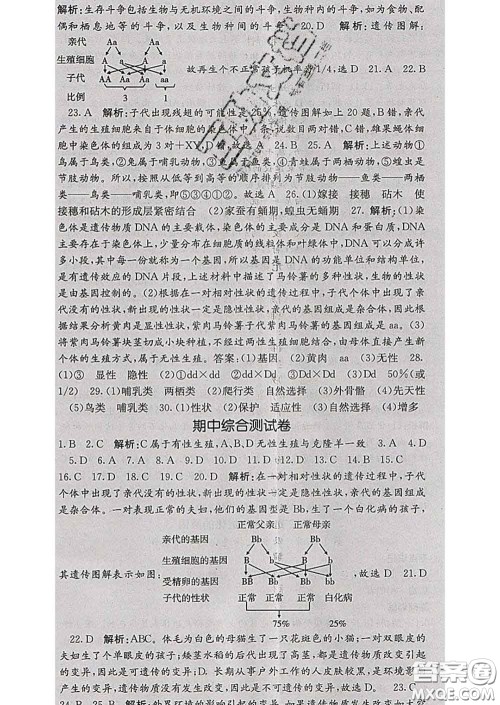 解析:生存斗争包括生物与无机环境之间的斗争、生物种内的斗争,如为食物、配
偶和栖息地等的斗争,以及生物种间的斗争 20.D 解析:遗传图解:
亲代 Aa Aa
生殖细胞 A a A a
子代 AA Aa Aa aa
故再生个不正常孩子机率是1/4,选D 21.A 22.B
比例 3 1
23.A 解析:子代出现残翅的可能性是25%,遗传图解如上20题,B错,亲代
产生的生殖细胞来自于体细胞的染色体中,条数数目两对错,C错,雄果蝇体细
胞中染色体的组成为3对+XY,D错,故选A 24.B 25.A 解析:上述动物①
鸟属于鸟类,②兔属于哺乳动物,③鱼属于鱼类,④青蛙属于两栖动物,⑤蝗虫是
节肢动物。所以,按照从低等到高等的顺序排列为节肢动物——鱼类——两栖
类——鸟类——哺乳类,即⑤③④①②。故选A 26.(1)嫁接 接穗 砧木 使
接穗和砧木的形成层紧密结合 (2)家蚕有蛹期,蝗虫无蛹期 27.解析:(1)染
色体是遗传物质DNA的主要载体,染色体的主要成分是DNA和蛋白质,DNA
主要存在于染色体上,少量分布在细胞质的线粒体和叶绿体中,DNA可以分成
许多小段,其中每一份就称为一个基因,基因是DNA的功能单位和结构单位,
是有遗传效应的DNA片段,上述材料中描述了马铃薯的多种性状,生物的性状
是由基因控制的。(2)根据在一对相对性状的遗传过程中,子代个体中出现了亲
代没有的性状,新出现的性状一定是隐性性状,亲代的基因组成是杂合体。根据
结果分析黄肉是显性性状,紫肉是隐性性状,紫肉马铃薯的基因组成是aa。(3)
将紫肉马铃薯块茎切成小块种植,不经过两性生殖细胞的结合,由母体直接产生
新个体的生殖方式,属于无性生殖。答案:(1)基因 (2)黄肉 aa (3)无性 28.
(1)③ 显性 隐性 (2)dd×dd Dd×Dd ①dd×Dd ③Dd×Dd 50%(或
1/2) 29.(1)哺乳类 两栖类 (2)爬行类 自然选择 (3)外骨骼 (4)先天性
(5)鸟类 哺乳类 30.(1)性状 (2)保护 适应性 (3)自然选择 (4)增多
期中综合测试卷
1.B 2.C 解析:C属于有性生殖,A、B、D无性生殖与克隆羊一致 3.A 4.D
5.D 6.C 7.D 8.D 9.B 10.D 11.D 12.C 13.B 14.B 15.D
16.C 17.D 18.C 19.D 20.D 解析:在一对相对性状的遗传过程中,子代
个体中出现了亲代没有的性状,新出现的性状一定是隐性性状,亲代的基因组成
是杂合体。一对表现正常的夫妇,他们的基因型是Bb,生了一个白化病的孩子,
正常父亲 正常母亲
亲代的基因 Bb Bb
生殖细胞的基因 B b B b
其遗传图解表示如图:受精卵的基因 BB Bb Bb bb ,故选D 21.D
子代的性状 正常 正常 正常 白化病
75% 25%
22.D 解析:ABC、体毛为白色的母猫生了一只花斑色的小猫;一对双眼皮的
夫妇生了一个单眼皮的子女;矮茎水稻的后代出现了高茎,都是遗传物质改变引起
的变异,因此是可遗传的变异;D、长期从事户外工作的人皮肤较黑,是环境影响
产生的变异,遗传物质没有发生改变,因此是不可遗传的变异。 23.C
24.B 25.B
答案圈
MXQE.COM